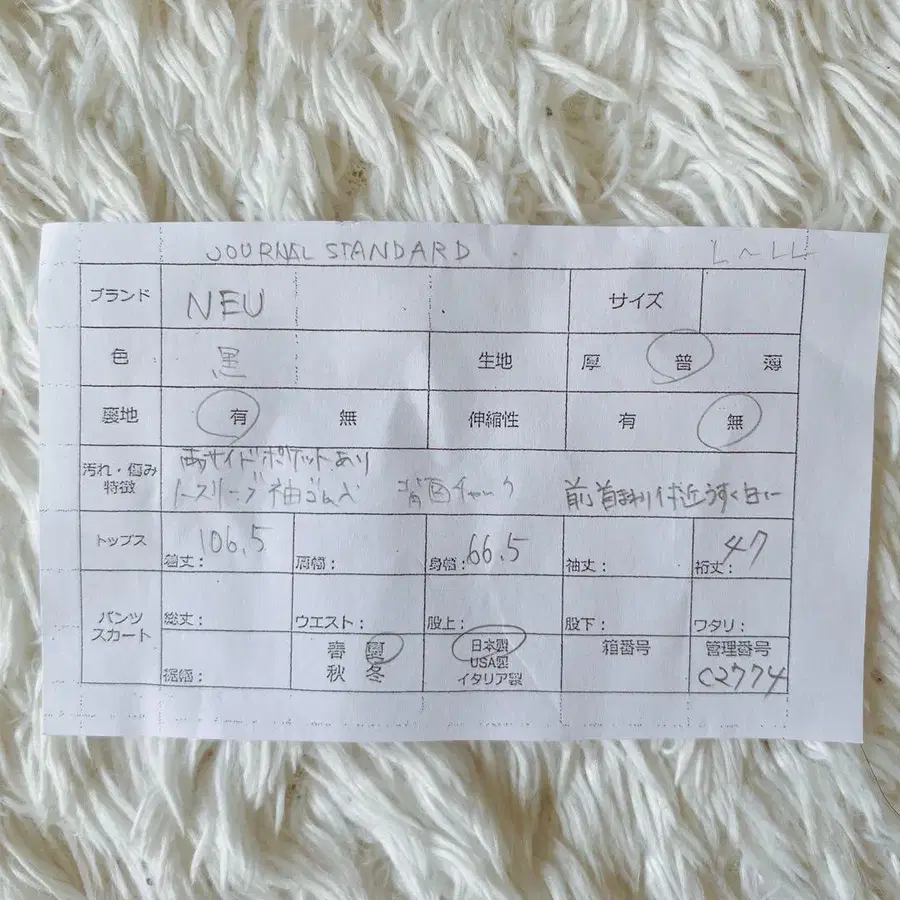 JOURNAL STANDARD L~LL
ブランド NEU サイズ
色 黒 生地 厚 普 薄
裏地 有 無 伸縮性 有 無
汚れ・傷み 両サイドポケットあり
特徴 ノースリーブ 袖ゴム 背面チャック 前首まわり付近うすく白い
トップス 着丈: 106.5 肩幅: 身幅: 66.5 袖丈: 裄丈: 47
パンツ
スカート 総丈: ウエスト: 股上: 股下: ワタリ:
裾幅: 春 夏 日本製 箱番号 管理番号
秋 冬 USA製 C2774
イタリア製